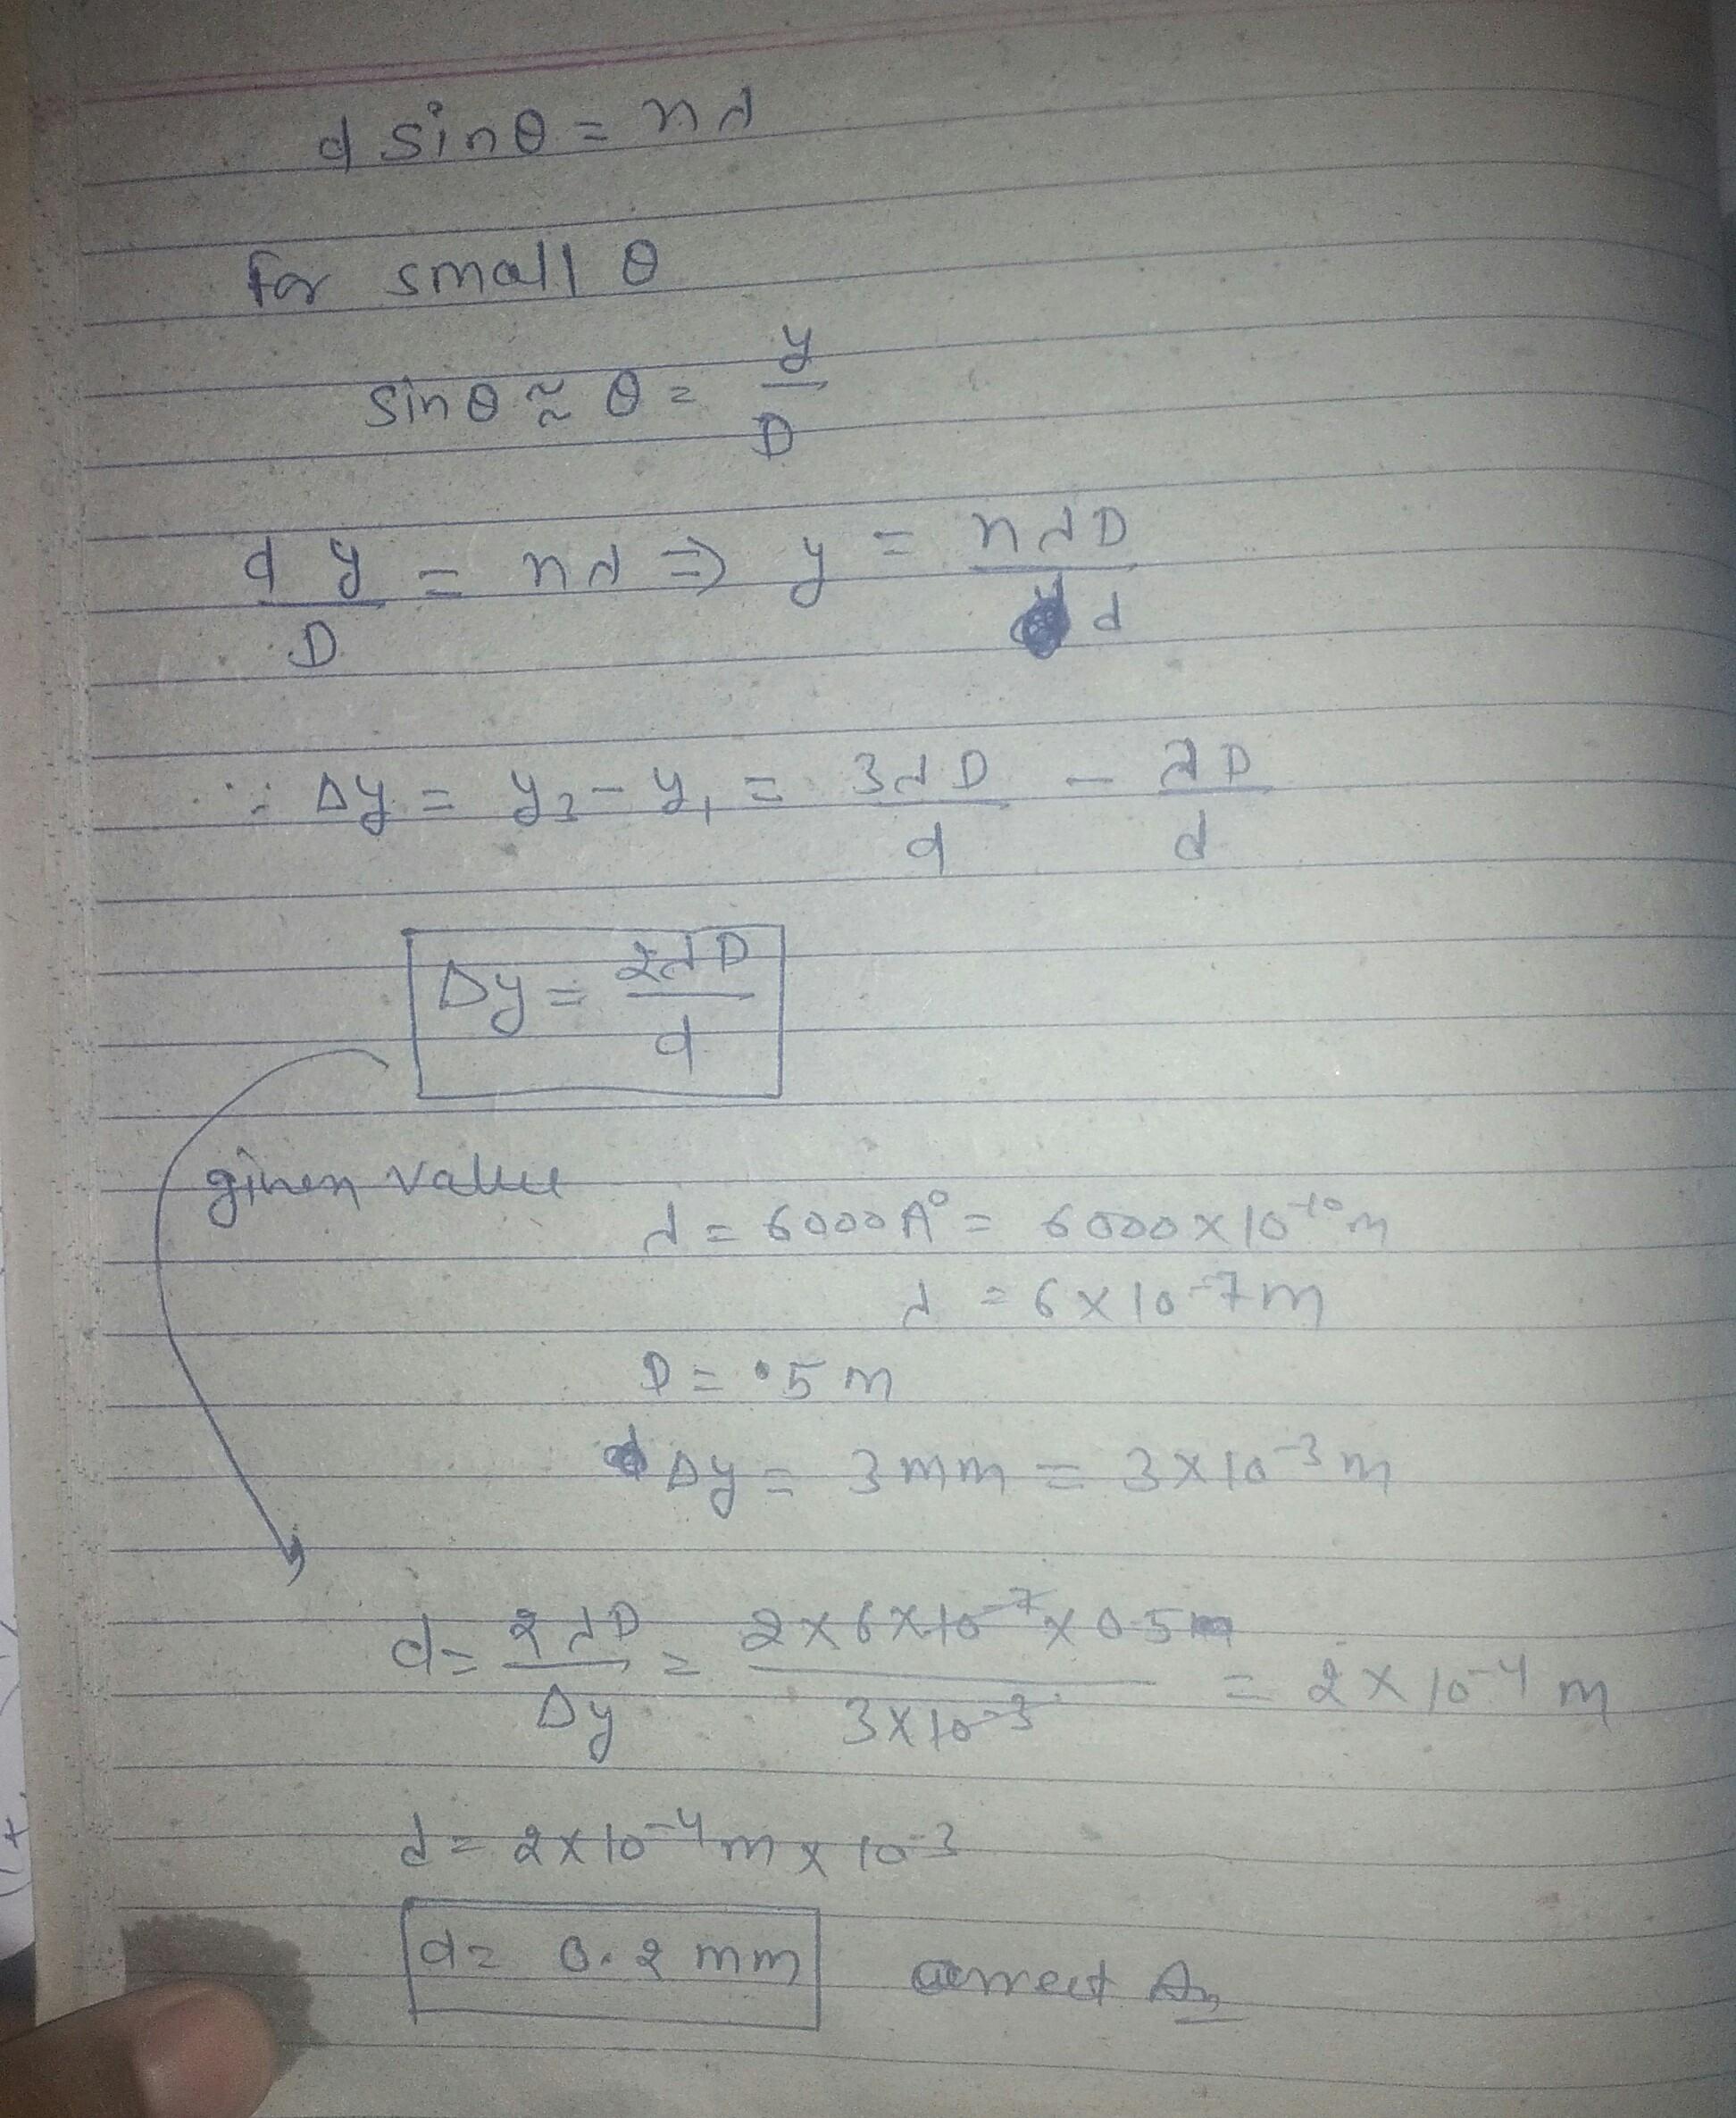 d sinθ = nλ
for small θ
sinθ ≈ θ = y/D
d y/D = nλ ⇒ y = nλD/d
∴ Δy = y₃ - y₁ = 3λD/d - λD/d
Δy = 2λD/d
given value
λ = 6000A° = 6000×10⁻¹⁰m
λ = 6×10⁻⁷m
D = .5m
Δy = 3mm = 3×10⁻³m
d = 2λD/Δy = 2×6×10⁻⁷×0.5/3×10⁻³ = 2×10⁻⁴m
d = 2×10⁻⁴m × 10⁻³
d = 0.2 mm correct An